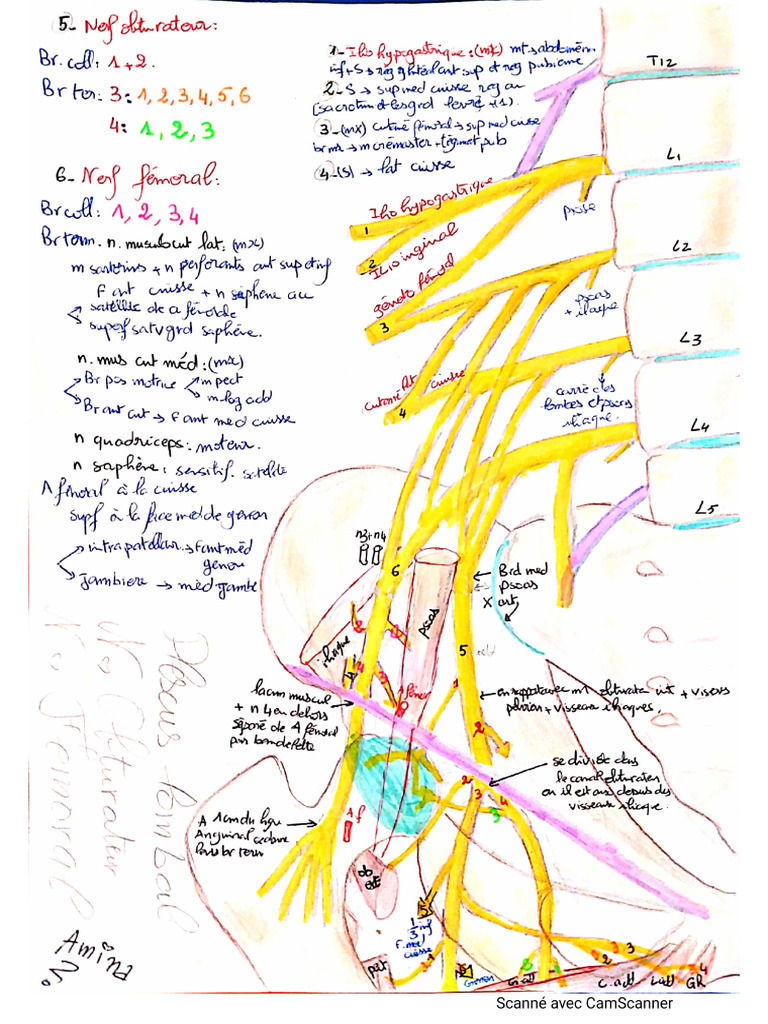 5- Nerf obturateur:
Br. coll: 1+2.
Br ter: 3: 1, 2, 3, 4, 5, 6
4: 1, 2, 3
6- Nerf fémoral:
Br coll: 1, 2, 3, 4
Br term. n. musculocut lat: (mx)
m sartorius + n perforants ant sup et inf
F ant cuisse + n saphène acc
satellite de a fémorale
superf satv grd saphène.
n. mus cut méd: (mx)
Br pos motrice m pect
m. log add
Br ant cut → F ant med cuisse
n quadriceps: moteur.
n saphène: sensitif. satellite
A fémoral à la cuisse
Supf à la face med de genou
infrapatellair → F ant méd
genou
Jambiere → med jambe
1- Ilio hypogastrique: (mx) mt abdomen
2- S → sup med cuisse
(scrotum et les grd lèvre)
3- (mx) cutané fémoral → sup med cuisse
m cremaster
4- (s) → lat cuisse
T12
L1
L2
L3
L4
L5
Ilio hypogastrique
1
2
Ilio inginal
génito fémoral
3
cutané lat cuisse
4
psoas
psoas
+ iliaque
carré des
lombes et psoas
iliaque.
n3+n4
6
psoas
iliaque
Brd med
psoas
X art
5
en rapport avec mt obturato int + viscers
pelvien + visseaux iliaques.
lacun muscul
+ n 4 en dehors
séparé de A fémoral
par bandelette
A fémor
2
se divise dans
le canal obturateur
ou il est au dessus des
visseaux iliaque.
2
3
4
3
A f
ob
ext
1/3 inf
F. med
cuisse
pect
Genou
C. add
L add
GR
2
3
4
Plexus lombal
N. Obturateur
N. Femoral
Amina
N.
Scanné avec CamScanner